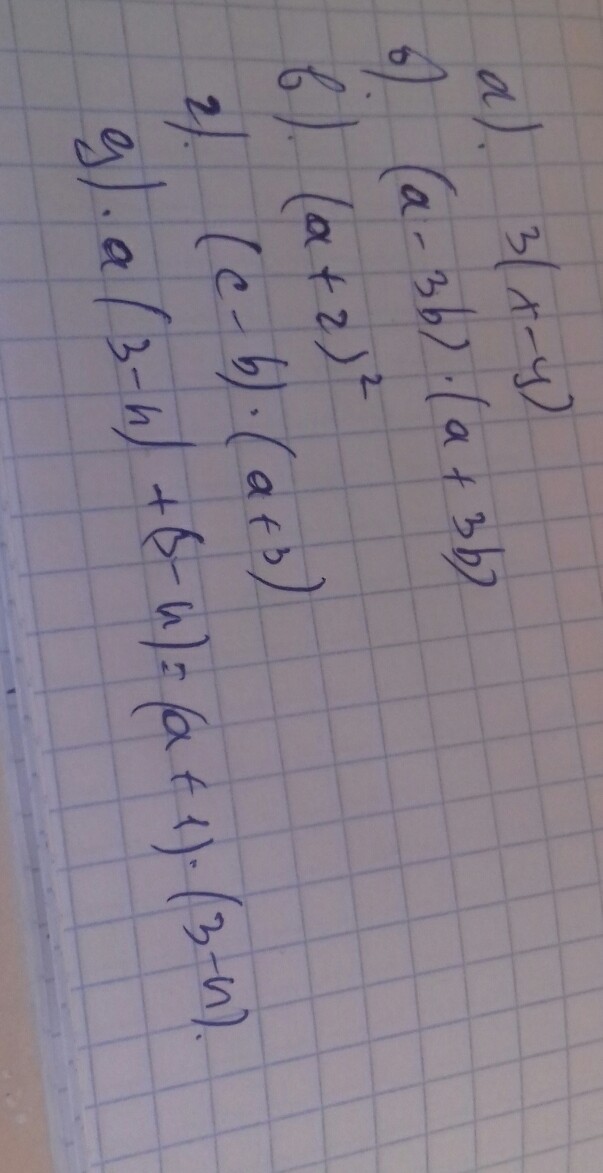 а). 3(x-y)
б) (a-3b)·(a+3b)
в). (a+2)²
г). (c-b)·(a+3)
д). a(3-n)+(3-n)=(a+1)·(3-n).